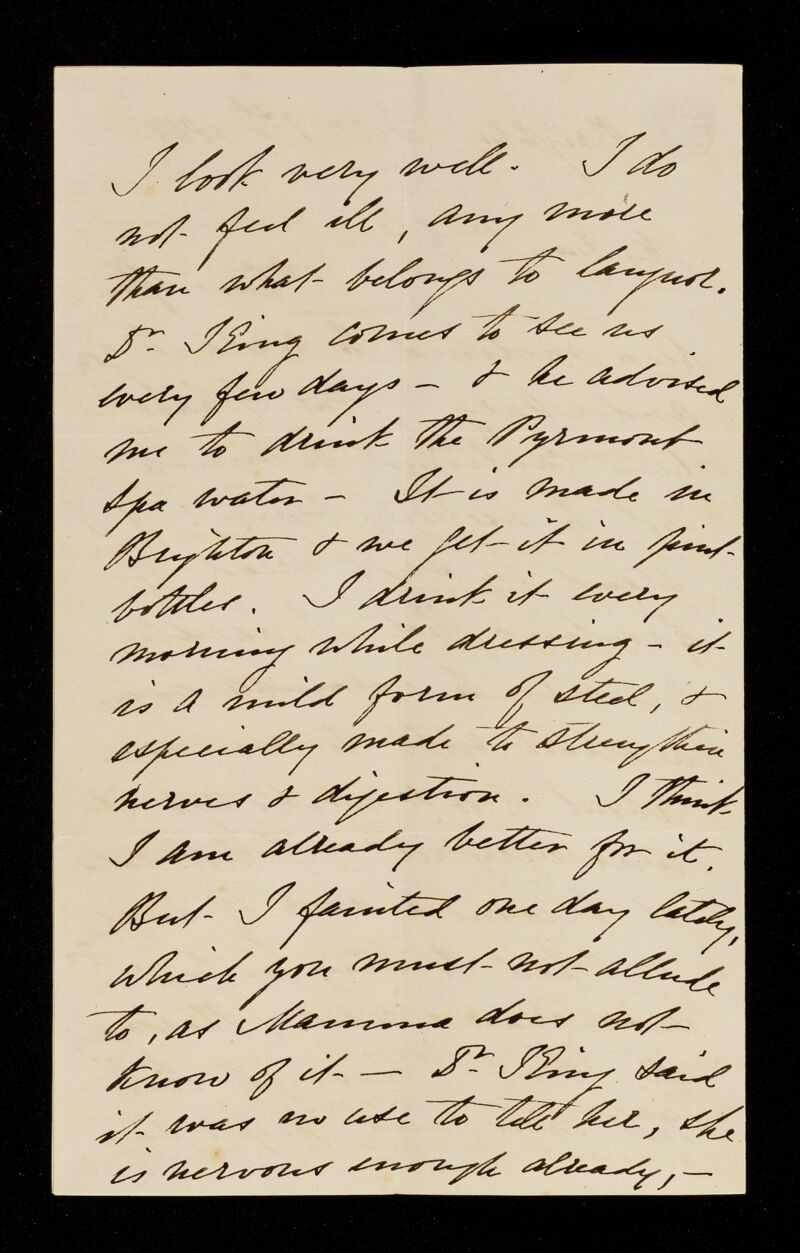 I look very well. I do
not feel ill, any more
than what belongs to languor.
Dr. King comes to see us
every few days – & he advised
me to drink the Pyrmont
Spa water – It is made in
Brighton & we get it in pint
bottles. I drink it every
morning while dressing – it
is a mild form of steel, &
especially made to strengthen
nerves & digestion. I think
I am already better for it.
But I fainted one day lately,
which you must not allude
to, as Mamma does not
know of it – Dr. King said
it was no use to tell her, she
is nervous enough already, –